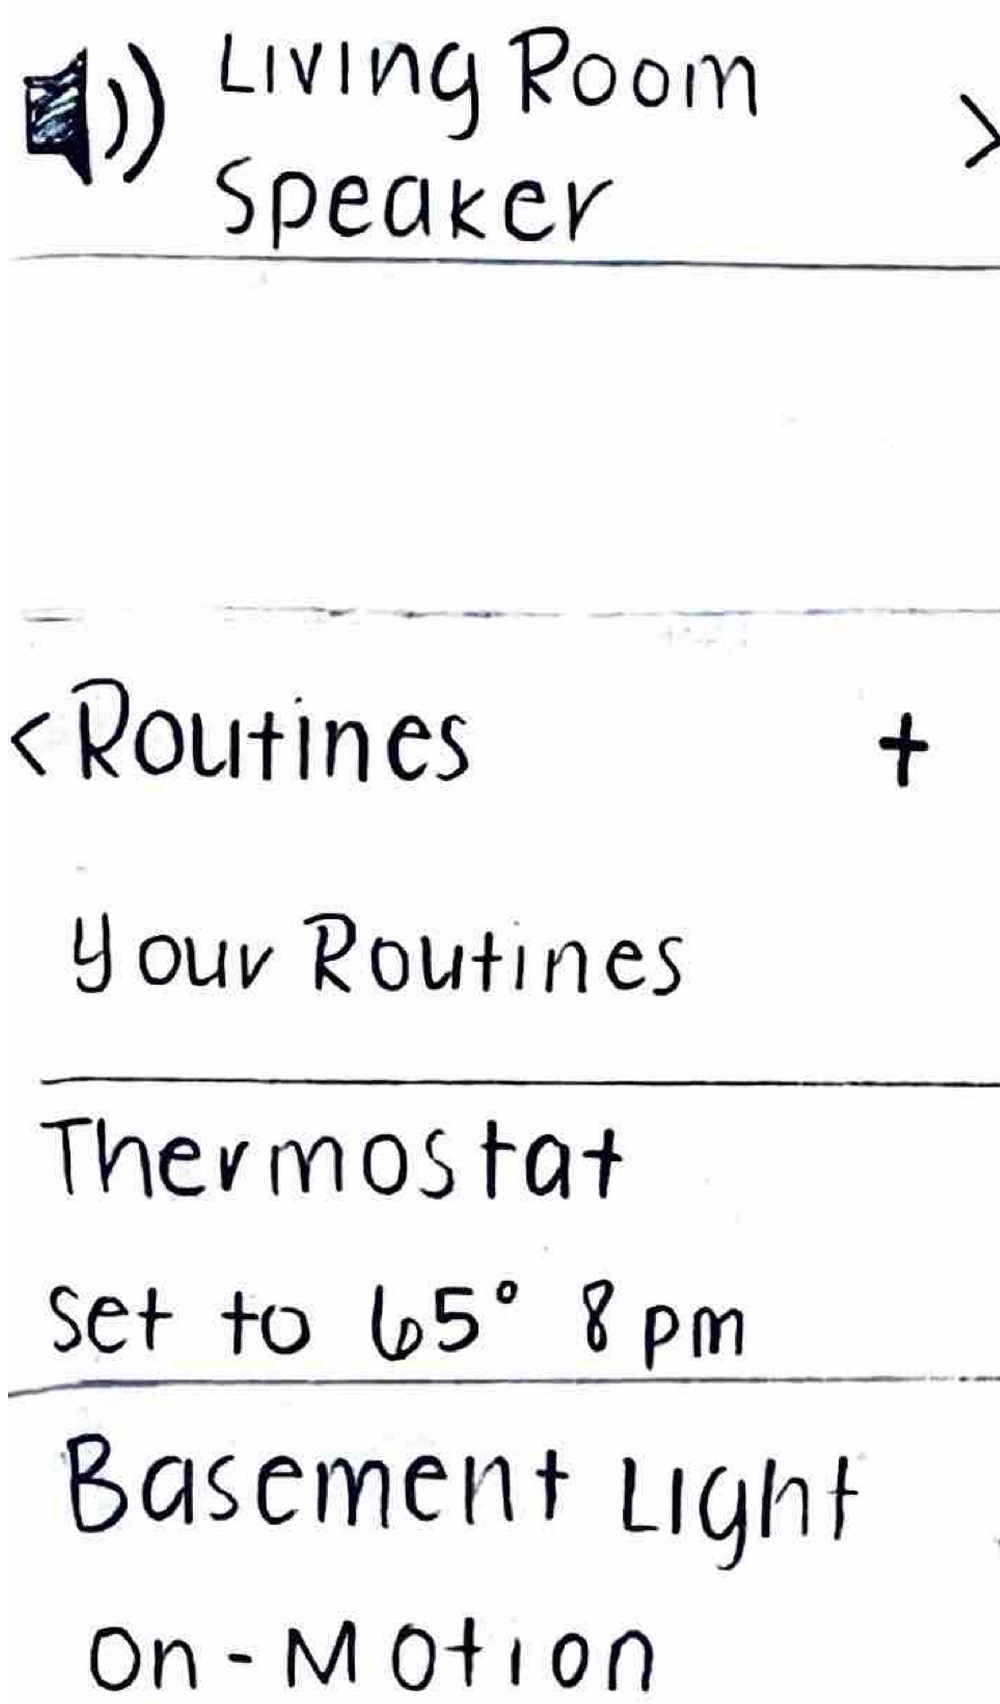 Living Room
Speaker
>
< Routines +
Your Routines
Thermostat
set to 65° 8pm
Basement Light
On-Motion